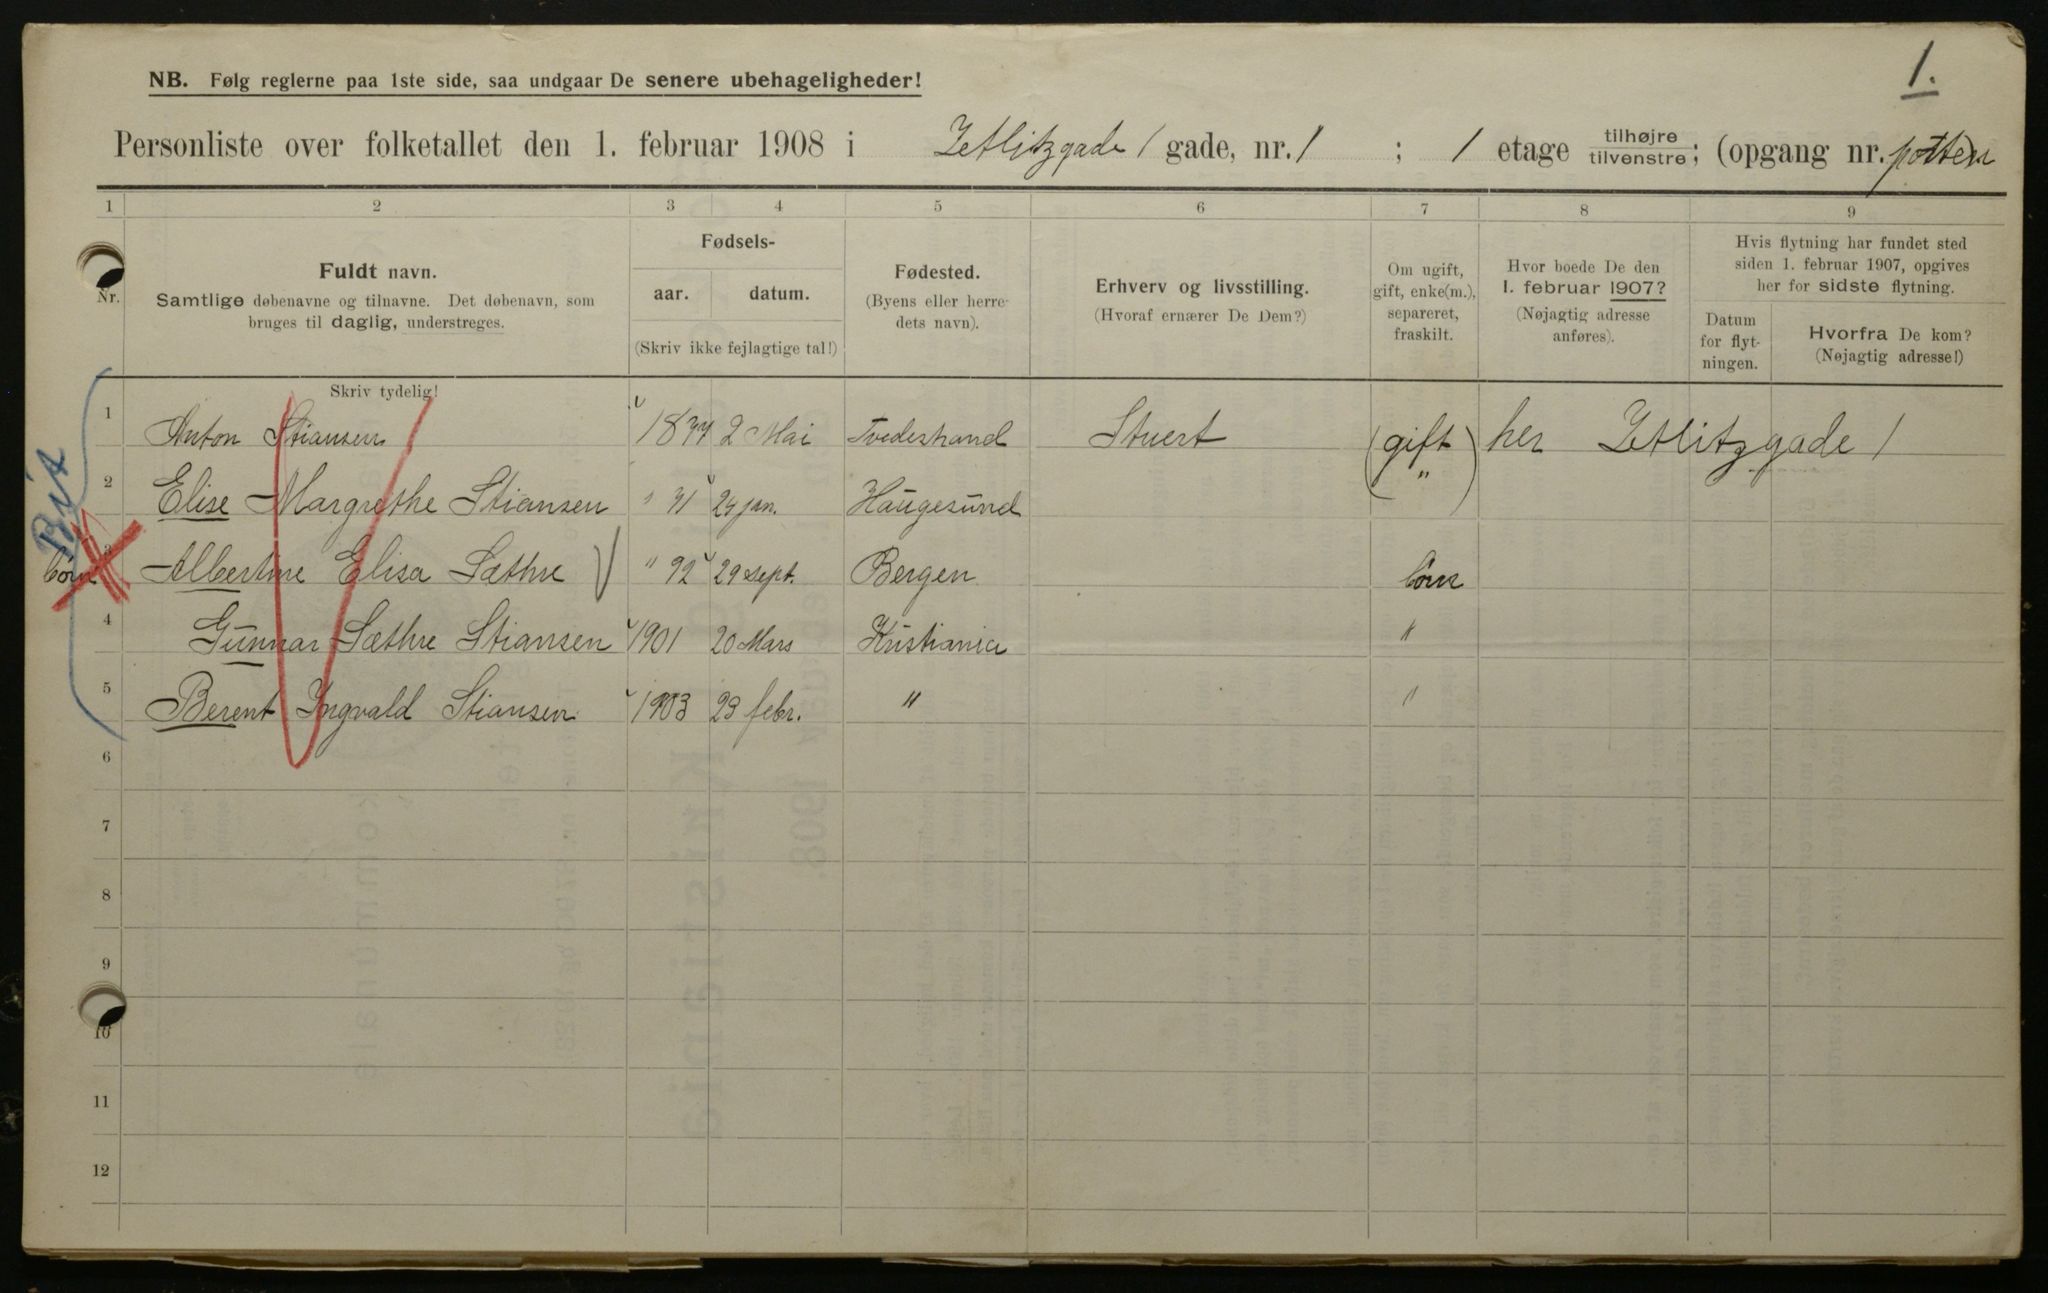 1.
NB. Følg reglerne paa 1ste side, saa undgaar De senere ubehageligheder!
Personliste over folketallet den 1. februar 1908 i Zetlitzgade 1 gade, nr. 1 ; 1 etage tilhøjre tilvenstre; (opgang nr. porten)
1 2 3 4 5 6 7 8 9
Nr.
Fuldt navn.
Samtlige døbenavne og tilnavne. Det døbenavn, som
bruges til daglig, understreges.
Skriv tydelig!
Fødsels-
aar. datum.
(Skriv ikke fejlagtige tal!)
Fødested.
(Byens eller herre-
dets navn).
Erhverv og livsstilling.
(Hvoraf ernærer De Dem?)
Om ugift,
gift, enke(m.),
separeret,
fraskilt.
Hvor boede De den
1. februar 1907?
(Nøjagtig adresse
anføres).
Hvis flytning har fundet sted
siden 1. februar 1907, opgives
her for sidste flytning.
Datum
for flyt-
ningen.
Hvorfra De kom?
(Nøjagtig adresse!)
1 Anton Stiansen 2 Mai Tvedestrand Stuert (gift) her Zetlitzgade 1
2 Elise Margrethe Stiansen " 71 24 jan. Haugesund "
børn 3 Albertine Elisa Sæthre " 92 29 sept. Bergen börn
4 Gunnar Sæthre Stiansen 1901 20 Mars Kristiania "
5 Berent Ingvald Stiansen 1903 23 febr. " "
6
7
8
9
10
11
12